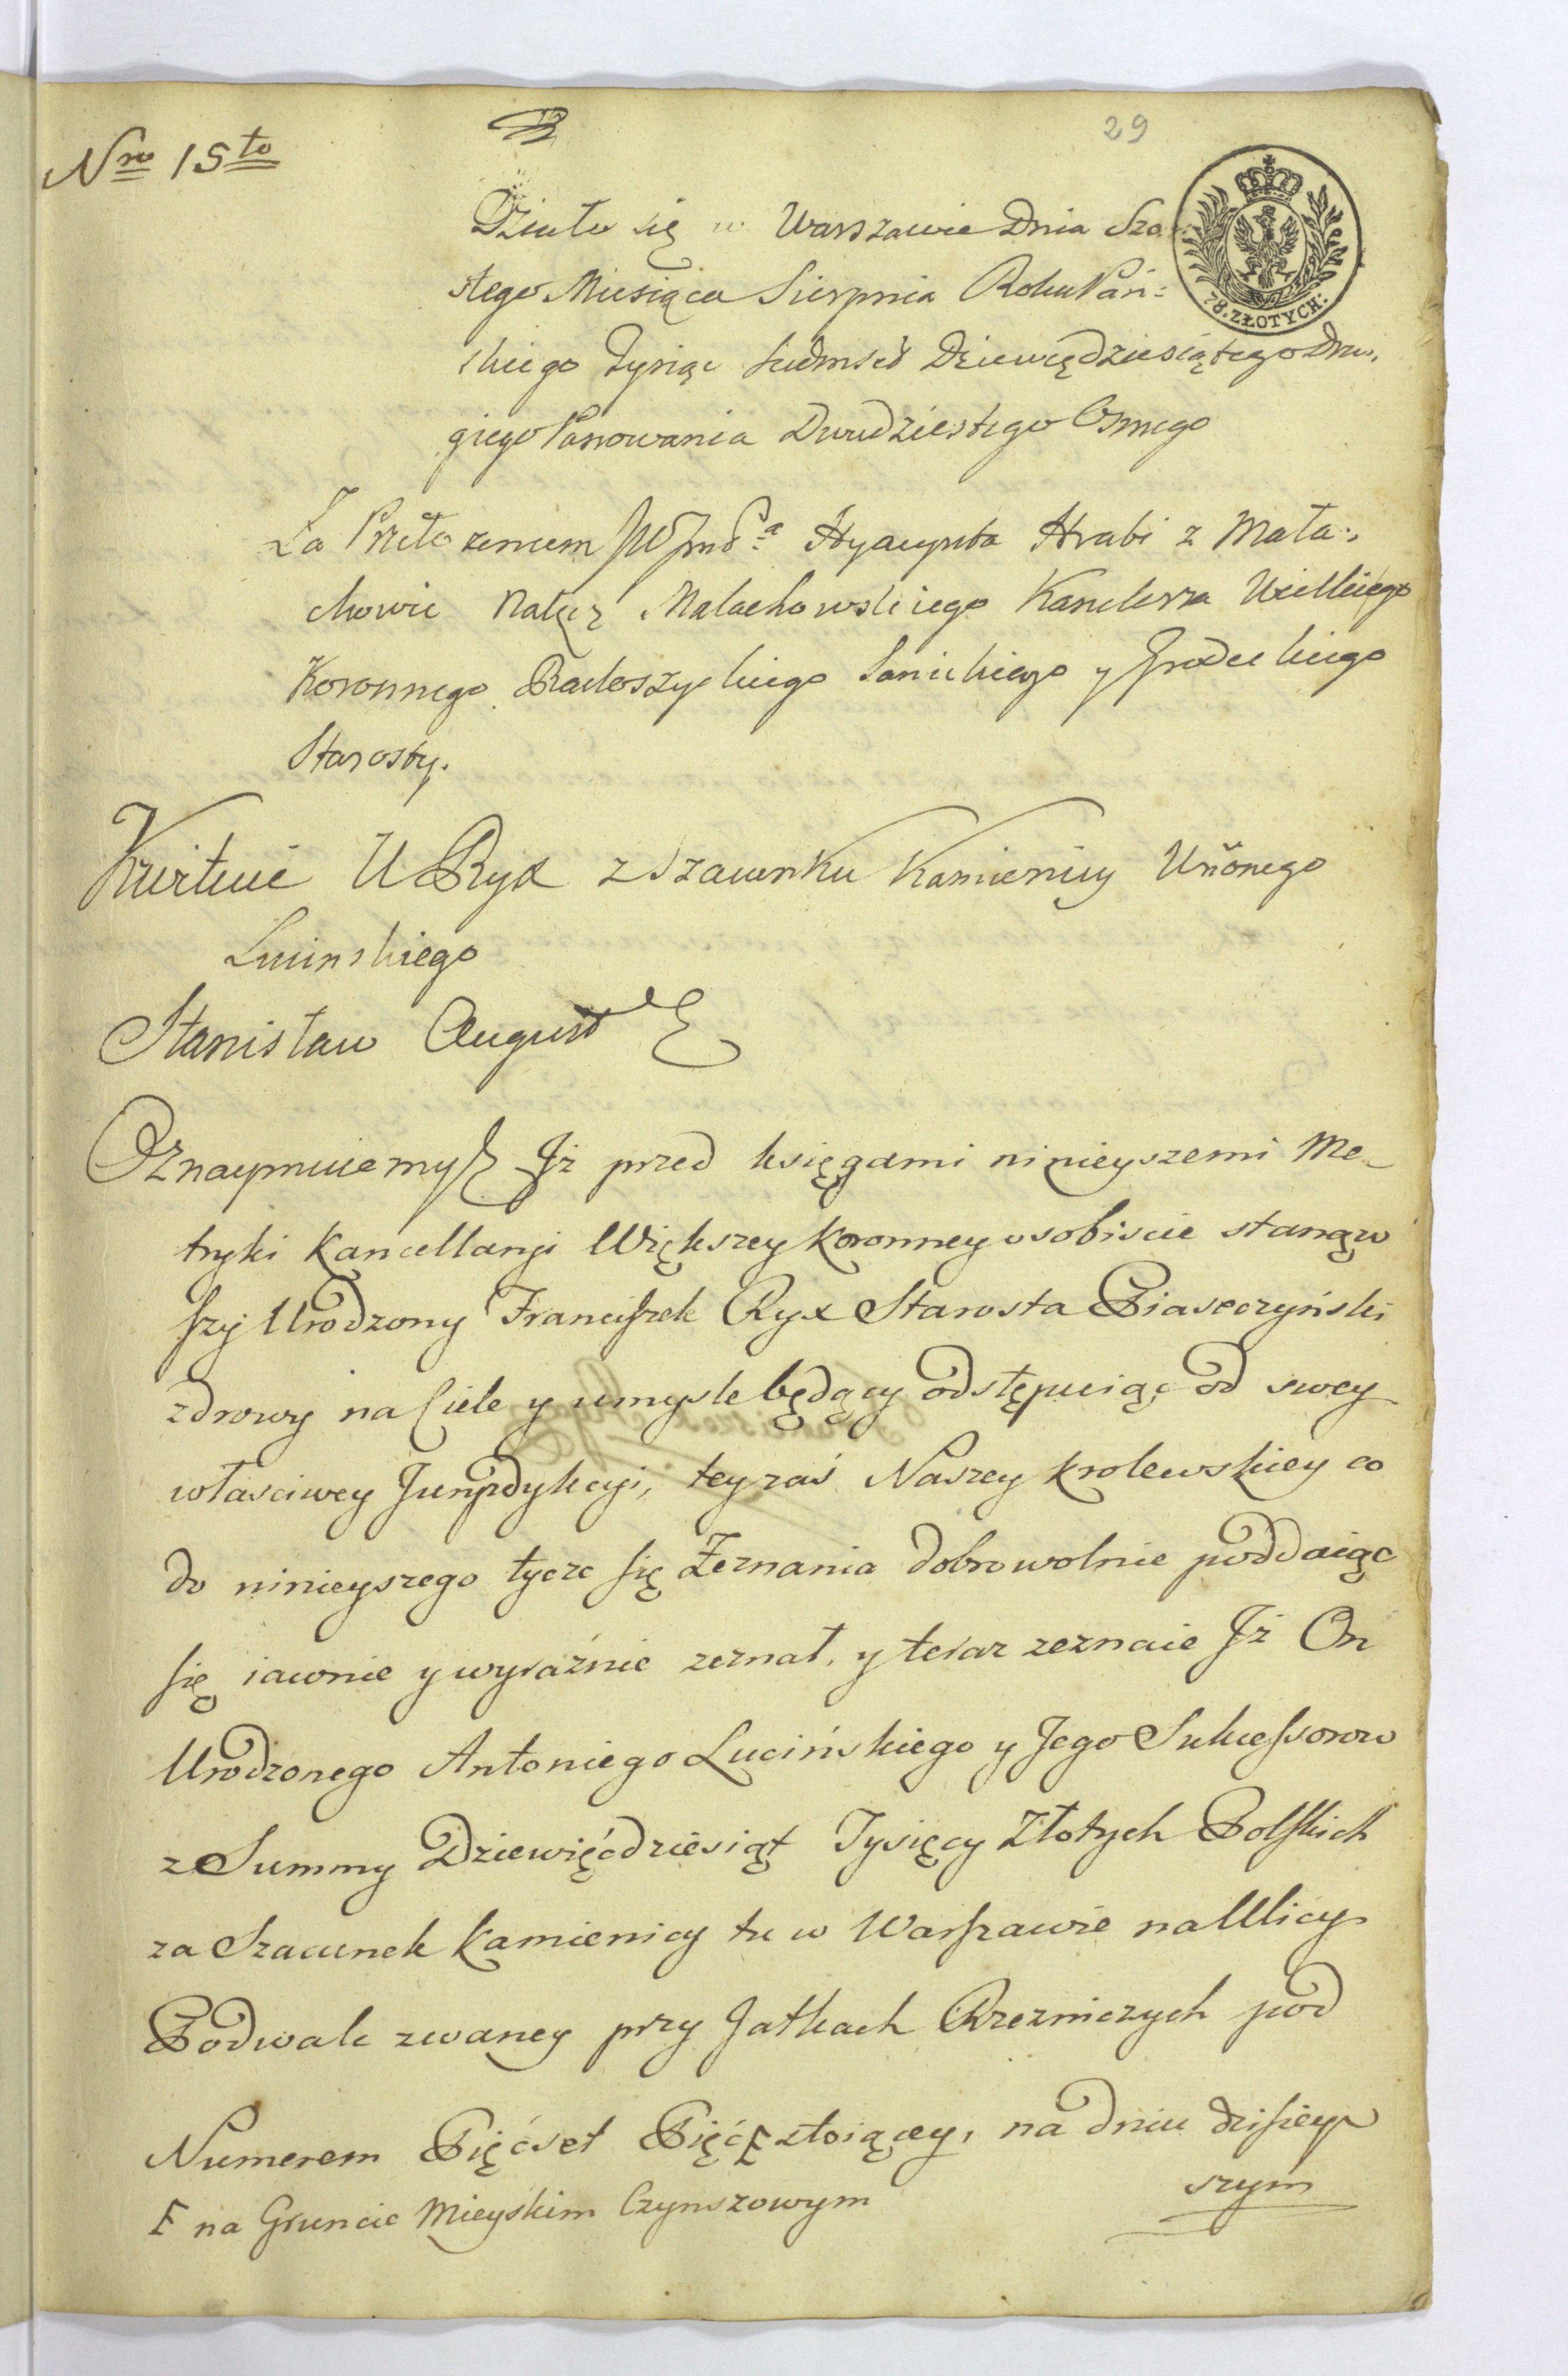 29
Nro 15to
Działo się w Warszawie Dnia Szo
stego Miesiąca Sierpnia Roku Pań:
78. ZŁOTYCH:
skiego Tysiąc Siedmset Dziewiędziesiątego Dru,
giego Panowania Dwudziestego Osmego
Za Przełożeniem Hyacynta Hrabi z Mała:
chowic Nałęcz Małachowskiego Kanclerza Wielkiego
Koronnego Radoszyckiego Sanickiego y Grodeckiego
Starosty.
Kwituie U Ryx z Szacunku Kamienicy Uro̅nego
Lucinskiego
Stanisław August
Oznaymuiemy Jż przed księgami ninieyszemi Me-
tryki Kancellaryi Większey Koronney osobiscie stanąw
szy Urodzony Franciszek Ryx Starosta Piaseczyński
zdrowy na Ciele y umysle będący odstępuiąc od swey
własciwey Juryzdykcyi, tey zaś Naszey krolewskiey co
do ninieyszego tycze się Zeznania dobrowolnie poddaiąc
się iawnie y wyraźnie zeznał, y teraz zeznaie Jż On
Urodzonego Antoniego Lucińskiego y Jego Sukcessorow
z Summy Dziewięćdziesiąt Tysięcy Złotych Polskich
za Szacunek kamienicy tu w Warszawie na Ulicy
Podwale zwaney przy Jatkach Rzezniczych pod
Numerem Pięćset Pięć F stoiącey, na dniu dzisiey
szym
F na Gruncie Mieyskim Czynszowym